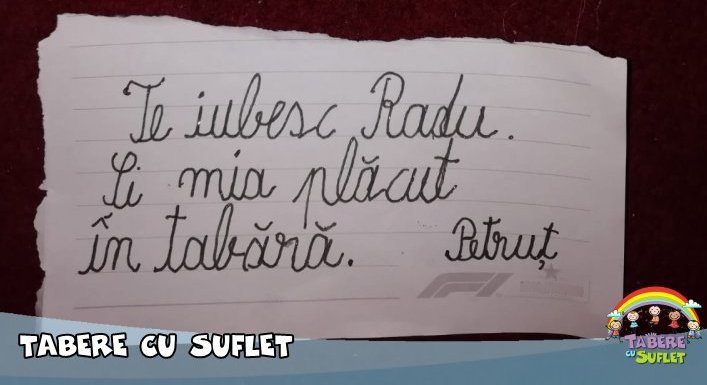 Te iubesc Radu.
Și mia plăcut
în tabără. Petruț
F1
TABERE CU SUFLET
TABERE
CU
SUFLET